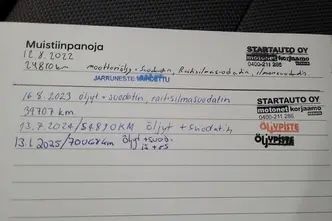 Muistiinpanoja
STARTAUTO OY
12.8.2022
motonet korjaamo
24810 km moottoriöljy + suodatin, Raitisilmasuodatin, ilmansuodatin
0400-211 286
JARRUNESTE VAIHDETTU
16.8.2023 öljyt + suodatin, raitisilmasuodatin
STARTAUTO OY
39707 km
motonet korjaamo
0400-211 286
13.7.2024/54820KM Öljyt + suodatin
ÖLJYPISTE
13.1.2025/70067km Öljyt + suod.
ÖLJYPISTE